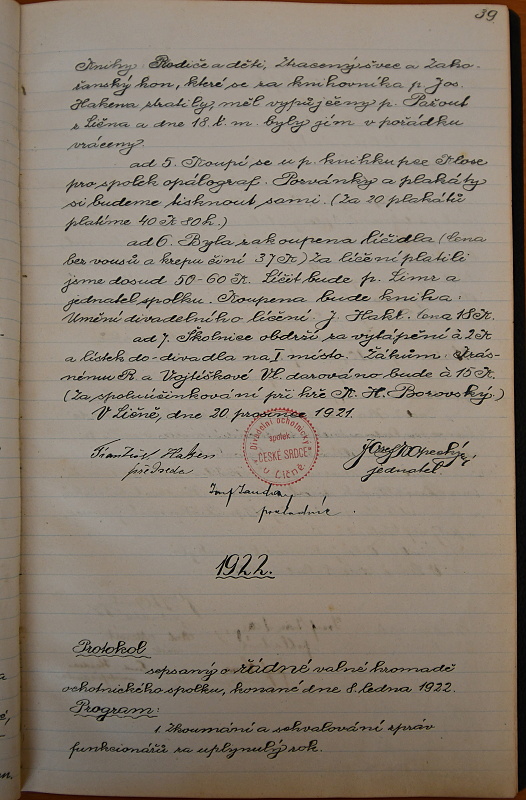 39.
Knihy: Rodiče a děti, Ztracený švec a Zako-
řanský kon, které se za knihovníka p. Jos.
Hakena ztratily, měl vypůjčeny p. Pašout
z Líšna a dne 18. t. m. byly jím v pořádku
vráceny.
ad 5. Koupí se u p. knihkupce Klose
pro spolek opálograf. Pozvánky a plakáty
si budeme tisknout sami. (Za 20 plakátů
platíme 40 K 80 h.)
ad 6. Byla zakoupena líčidla (Cena
bez vousů a krepu činí 37 K) Za líčení platili
jsme dosud 50-60 K. Líčit bude p. Limr a
jednatel spolku. Koupena bude kniha:
Umění divadelního líčení. J. Hakr. Cena 18 K.
ad 7. Školnice obdrží za vytápění à 2 K
a lístek do divadla na I místo. Žákům:
nému R. a Vojtíškové Vl. darováno bude à 15 K.
(Za spoluúčinkování při hře K. H. Borovský.)
V Líšně, dne 20 prosince 1921.
Divadelní ochotnický
spolek
"ČESKÉ SRDCE"
v Líšně
František Haken
předseda
Josef
jednatel.
Josef
pokladník.
1922.
Protokol
sepsaný o řádné valné hromadě
ochotnického spolku, konané dne 8. ledna 1922.
Program:
1. Zkoumání a schvalování zpráv
funkcionářů za uplynulý rok.